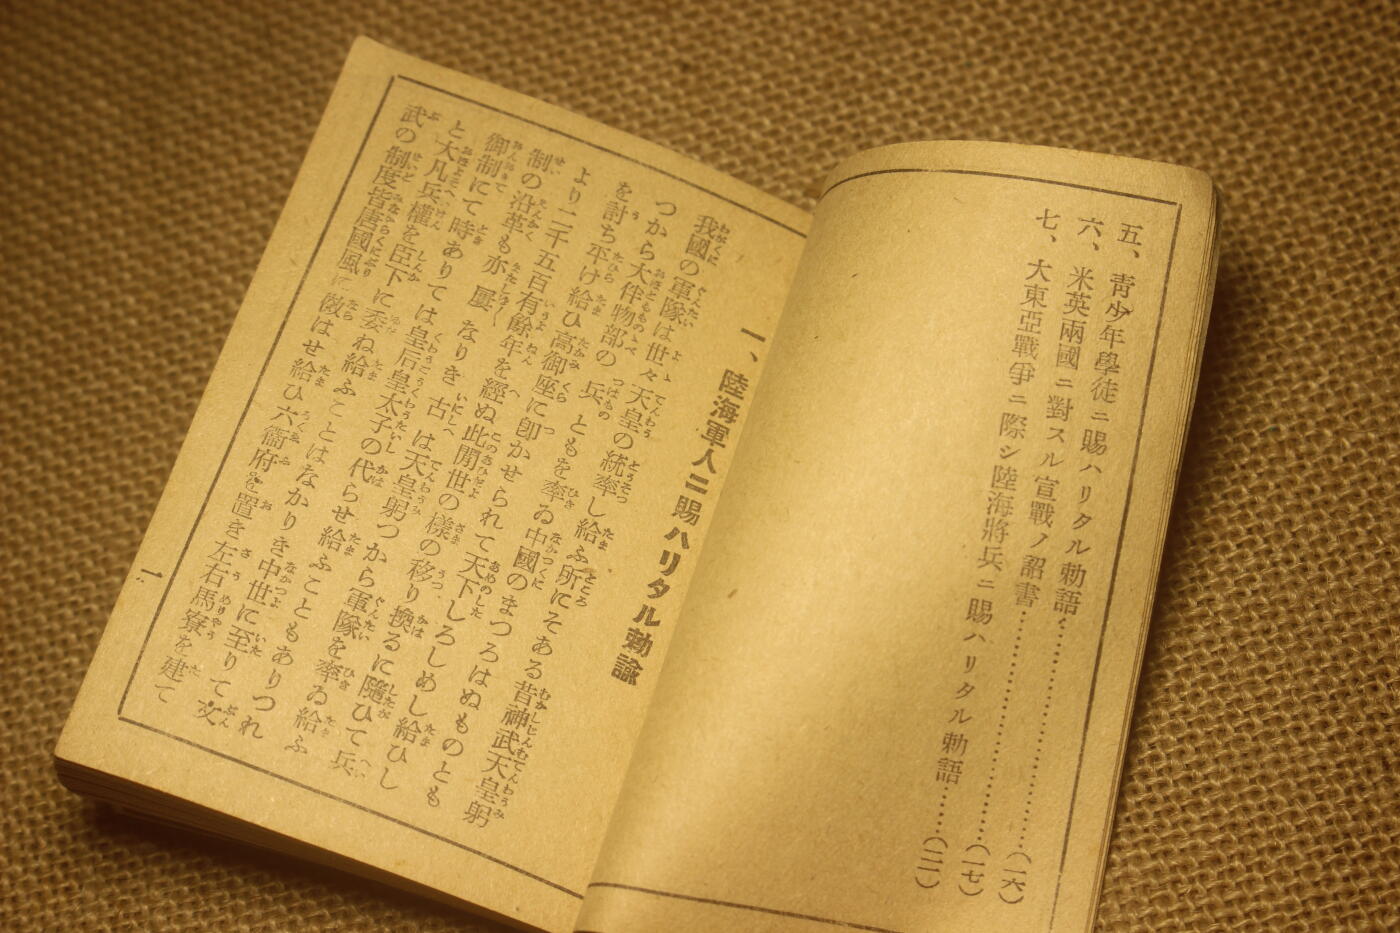 五、靑少年學徒ニ賜ハリタル勅語……………(一六)
六、米英兩國ニ對スル宣戰ノ詔書……………(一七)
七、大東亞戰爭ニ際シ陸海將兵ニ賜ハリタル勅語……(二一)
一、陸海軍人ニ賜ハリタル勅諭
我國の軍隊は世々天皇の統率し給ふ所にそある昔神武天皇躬
つから大伴物部の兵ともを率ゐ中國のまつろはぬものとも
を討ち平け給ひ高御座に卽かせられて天下しろしめし給ひし
より二千五百有餘年を經ぬ此閒世の樣の移り換るに隨ひて兵
制の沿革も亦屢なりき古は天皇躬つから軍隊を率ゐ給ふ
御制にて時ありては皇后皇太子の代らせ給ふこともありつれ
と大凡兵權を臣下に委ね給ふことはなかりき中世に至りて文
武の制度皆唐國風に傚はせ給ひ六衞府を置き左右馬寮を建て
一